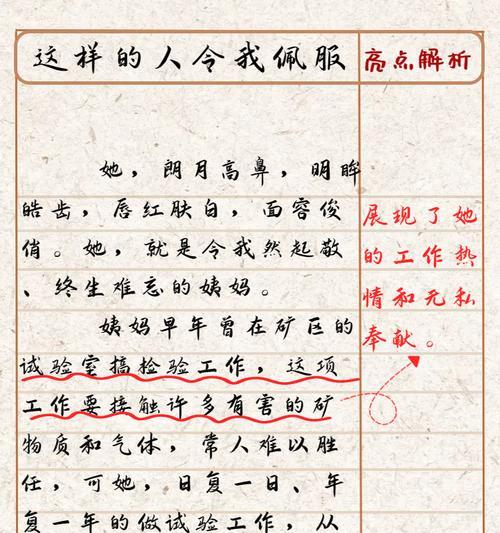 这样的人令我佩服
亮点解析
她，朗月高鼻，明眸
皓齿，唇红肤白，面容俊
俏。她，就是令我然起敬
、终生难忘的姨妈。
姨妈早年曾在矿区的
试验室搞检验工作，这项
工作要接触许多有害的矿
物质和气体，常人难以胜
任，可她，日复一日、年
复一年的做试验工作，从
展现了她
的工作热
情和无私
奉献。